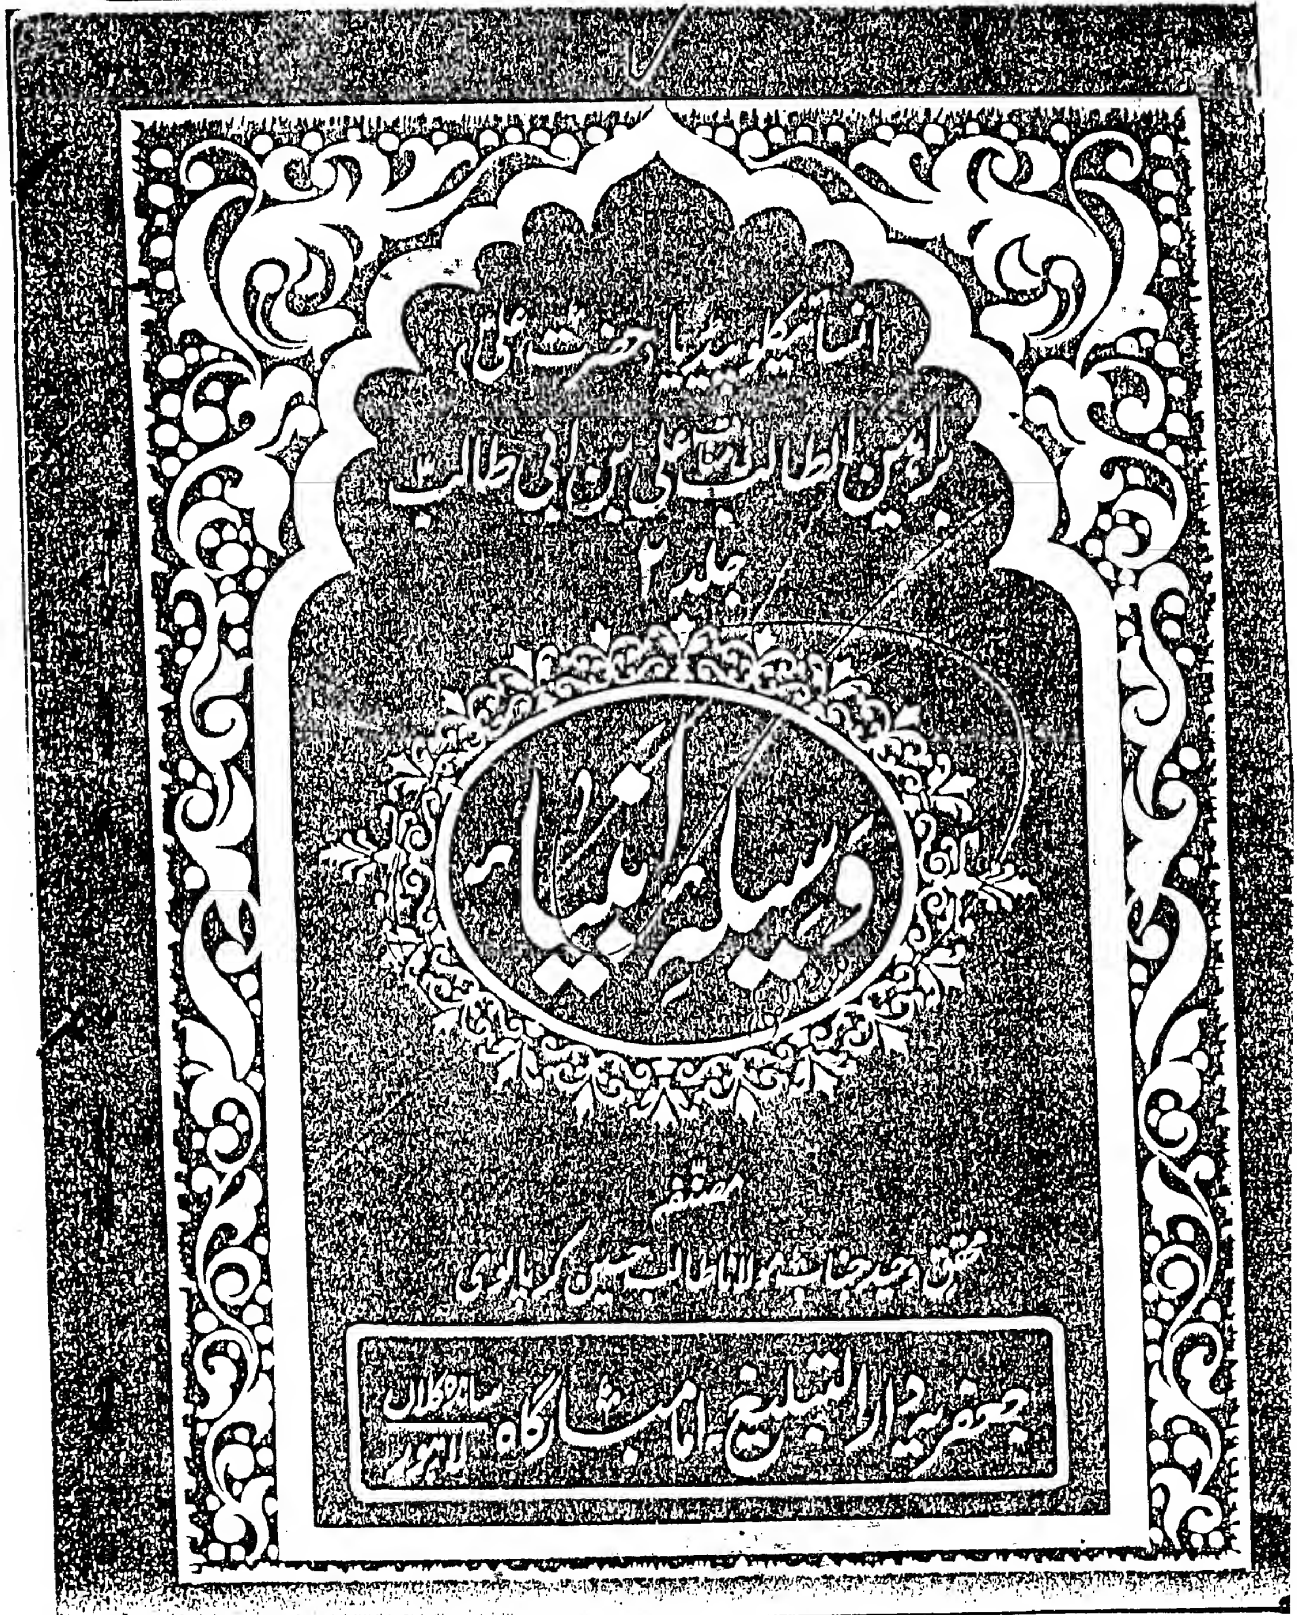 انسائیکلوپیڈیا حضرت علیؑ
براہین المطالب فی مناقب علی بن ابی طالبؑ
جلد ۲
وسیلہ انبیاء
مصنف
محقق وحید جناب مولانا طالب حسین کرپالوی
جعفریہ دارالتبلیغ امامبارگاہ سانده کلاں
لاہور